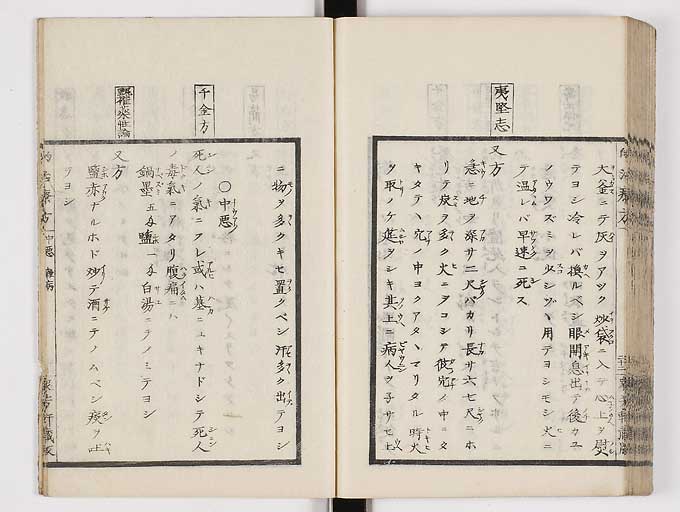 大釜ニテ灰ヲアツク炒袋ニ入テ心上ヲ熨
テヨシ冷レバ換ルベシ眼開息出テ後カユ
ノウワズミヲ少シヅヽ用テヨシモシ火ニ
テ温レバ早速ニ死ス
夷堅志
又方
急ニ地ヲ深サ二尺バカリ長サ六七尺ニホ
リテ炭ヲ多ク火ニヲコシテ彼穴ノ中ニタ
キタテヽ穴ノ中ヨクアタヽマリタル時火
ヲ取ノケ筵ヲシキ其上ニ病人ヲ子サセ上
ニ物ヲ多クキセ置クベシ汗多ク出テヨシ
○中悪
千金方
死人ノ氣ニフレ或ハ墓ニユキナドシテ死人
ノ毒氣ニアタリ腹痛ニハ
鍋墨五匁鹽一匁白湯ニテノミテヨシ
又方
鹽赤ナルホド炒テ酒ニテノムベシ痰ヲ吐
テヨシ
中悪